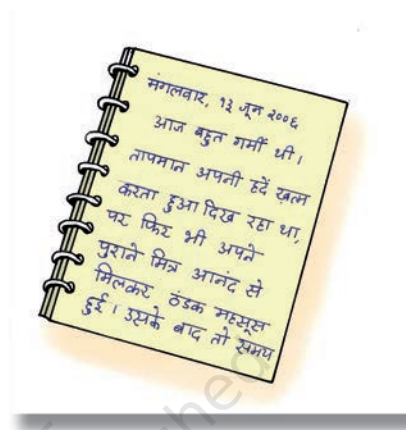 मंगलवार, १३ जून २००६
आज बहुत गर्मी थी।
तापमान अपनी हदें ख़त्म
करता हुआ दिख रहा था,
पर फिर भी अपने
पुराने मित्र आनंद से
मिलकर ठंडक महसूस
हुई। उसके बाद तो समय